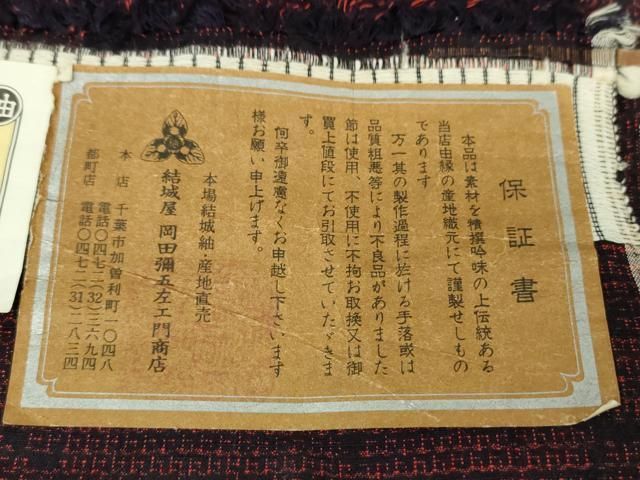 保証書
本品は素材を精撰吟味の上伝統ある
当店由縁の産地織元にて謹製せしもの
であります
万一其の製作過程に於ける手落或は
品質粗悪等により不良品がありました
節は使用、不使用に不拘お取換又は御
買上値段にてお引取させていたゞきま
す。
何卒御遠慮なくお申越し下さいます
様お願い申上げます。
本場結城紬・産地直売
結城屋 岡田彌五左エ門商店
本店 千葉市加曽利町一〇四八
電話〇四七二(32)二六九四
都町店 電話〇四七二(31)二八三四
紬